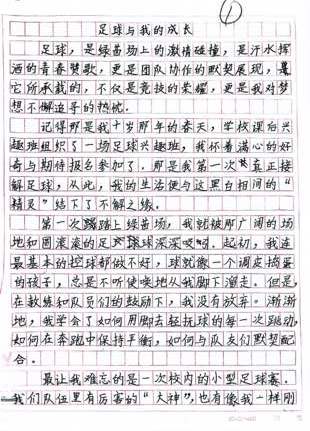 ①
足球与我的成长
足球，是绿茵场上的激情碰撞，是汗水挥
洒的青春赞歌，更是团队协作的默契展现，是
它所承载的，不仅是竞技的荣耀，更是我对梦
想不懈追寻的热忱。
记得那是我十岁那年的春天，学校课后兴
趣班组织了一场足球兴趣班，我怀着满心的好
奇与期待报名参加了。那是我第一次真正接
解足球，从此，我的生活便与这黑白相间的“
精灵”结下了不解之缘。
第一次踏上绿茵场，我就被那广阔的场
地和圆滚滚的足球深深吸引。起初，我连
最基本的控球都做不好，球就像一个调皮捣蛋
的孩子，总是不听使唤地从我脚下溜走。但是，
在教练和队员们的鼓励下，我没有放弃。渐渐
地，我学会了如何用脚去轻抚球的每一次跳动，
如何在奔跑中保持平衡，如何与队友们默契配
合。
最让我难忘的是一次校内的小型足球赛。
我们队伍里有厉害的“大神”，也有像我一样刚